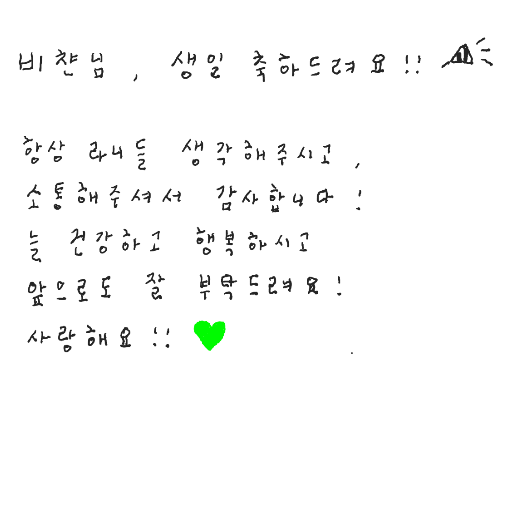 비챤님, 생일 축하드려요!!
항상 라니들 생각해주시고,
소통해주셔서 감사합니다!
늘 건강하고 행복하시고
앞으로도 잘 부탁드려요!
사랑해요!!